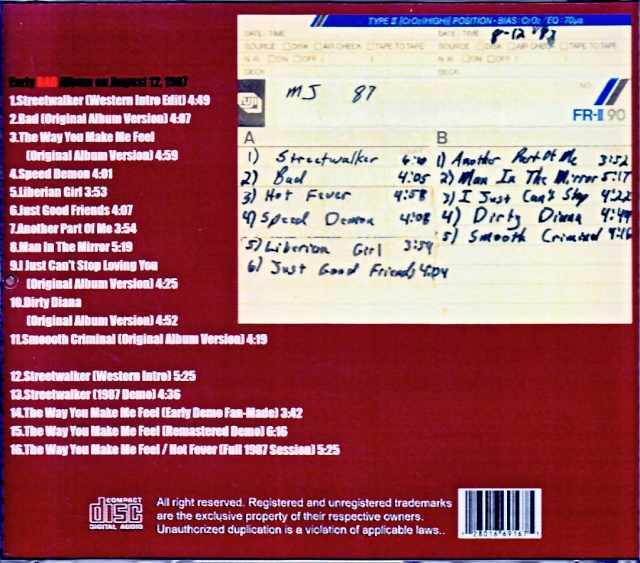 TYPE II [CrO2(HIGH)] POSITION • BIAS: CrO2 / EQ: 70μs
DATE · TIME
DATE · TIME 8-12-'87
SOURCE □DISK □AIR CHECK □TAPE TO TAPE
SOURCE □DISK □AIR CHECK □TAPE TO TAPE
N.R. □ON □OFF ( )
N.R. □ON □OFF ( )
DECK
DECK
FUJI
MJ 87
NO.
FR-II 90
A
B
1) Streetwalker
2) Bad 4:05
3) Hot Fever 4:58
4) Speed Demon 4:08
5) Liberian Girl 3:54
6) Just Good Friends 4:04
1) Another Part Of Me 3:52
2) Man In The Mirror 5:17
3) I Just Can't Stop 4:22
4) Dirty Diana 4:49
5) Smooth Criminal 4:16
Early BAD Album on August 12, 1987
1.Streetwalker (Western Intro Edit) 4:49
2.Bad (Original Album Version) 4:07
3.The Way You Make Me Feel
(Original Album Version) 4:59
4.Speed Demon 4:01
5.Liberian Girl 3:53
6.Just Good Friends 4:07
7.Another Part Of Me 3:54
8.Man In The Mirror 5:19
9.I Just Can't Stop Loving You
(Original Album Version) 4:25
10.Dirty Diana
(Original Album Version) 4:52
11.Smoooth Criminal (Original Album Version) 4:19
12.Streetwalker (Western Intro) 5:25
13.Streetwalker (1987 Demo) 4:36
14.The Way You Make Me Feel (Early Demo Fan-Made) 3:42
15.The Way You Make Me Feel (Remastered Demo) 6:16
16.The Way You Make Me Feel / Hot Fever (Full 1987 Session) 5:25
COMPACT
disc
DIGITAL AUDIO
All right reserved. Registered and unregistered trademarks
are the exclusive property of their respective owners.
Unauthorized duplication is a violation of applicable laws..
28016 69167